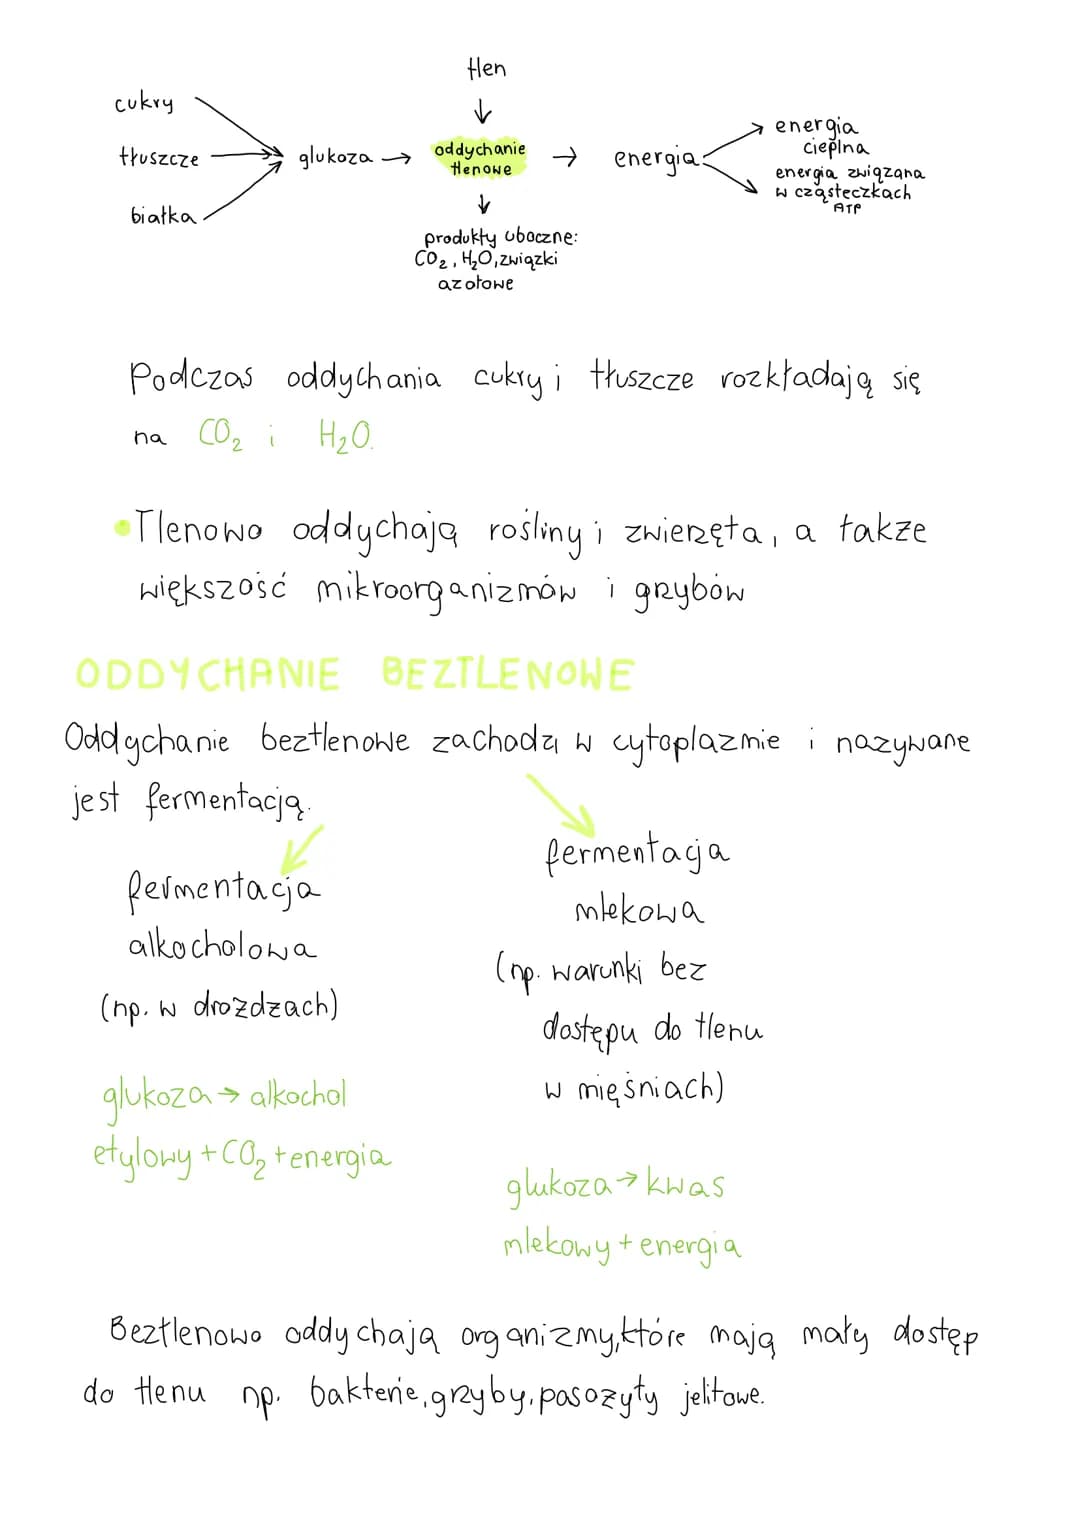 tlen
cukry
tłuszcze
białka
glukoza → oddychanie tlenowe → energia
energia cieplna
energia związana
w cząsteczkach
ATP
produkty uboczne:
CO₂, H₂O, związki
azotowe
Podczas oddychania cukry i tłuszcze rozkładają się
na CO₂ i H₂O.
• Tlenowo oddychają rośliny i zwierzęta, a także
większość mikroorganizmów i grzybów
ODDYCHANIE BEZTLENOWE
Oddychanie beztlenowe zachodzi w cytoplazmie i nazywane
jest fermentacją.
fermentacja
alkocholowa
(np. w drożdzach)
glukoza → alkochol
etylowy + CO₂ + energia
fermentacja
mlekowa
(np. warunki bez
dostępu do tlenu
w mięśniach)
glukoza → kwas
mlekowy + energia
Beztlenowo oddychają organizmy, które mają mały dostęp
do tlenu np. bakterie, grzyby, pasożyty jelitowe.